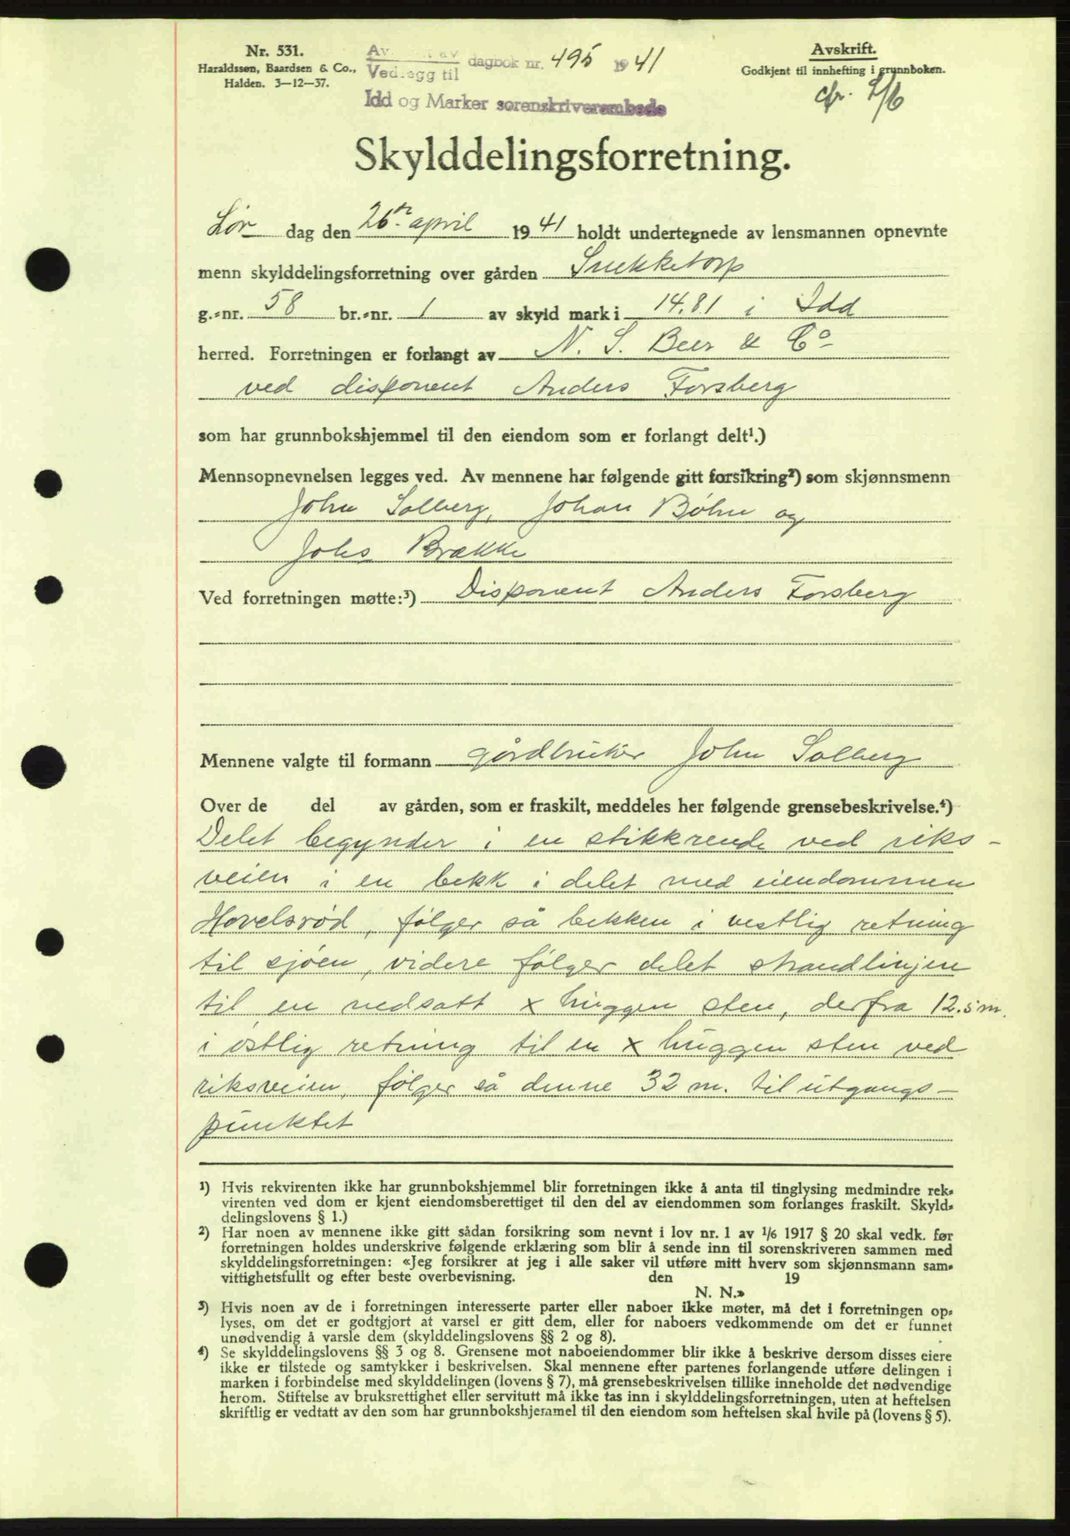 Nr. 531.
Haraldssen, Baardsen & Co.,
Halden. 3—12—37.
Vedlegg til dagbok nr. 495 1941
Idd og Marker sorenskriverembede
Avskrift.
Godkjent til innhefting i grunnboken.
cfr. 4/6
Skylddelingsforretning.
Lør dag den 26de april 1941 holdt undertegnede av lensmannen opnevnte
menn skylddelingsforretning over gården Snekketorp
g.=nr. 58 br.=nr. 1 av skyld mark i 14.81 i Idd
herred. Forretningen er forlangt av N. S. Beer & Co
ved disponent Anders Forsberg
som har grunnbokshjemmel til den eiendom som er forlangt delt¹.)
Mennsopnevnelsen legges ved. Av mennene har følgende gitt forsikring²) som skjønnsmenn
John Solberg, Johan Bøhn og
Johs Brække
Ved forretningen møtte:³) Disponent Anders Forsberg
Mennene valgte til formann gårdbruker John Solberg
Over de del av gården, som er fraskilt, meddeles her følgende grensebeskrivelse.⁴)
Delet begynder i en stikkrende ved riks-
veien i en bekk i delet med eiendommen
Hovelsrød, følger så bekken i vestlig retning
til sjöen, videre følger delet strandlinjen
til en nedsatt x huggen sten, derfra 12.5 m.
i östlig retning til en x huggen sten ved
riksveien, følger så denne 32 m. til utgangs-
punktet
¹) Hvis rekvirenten ikke har grunnbokshjemmel blir forretningen ikke å anta til tinglysing medmindre rek=
virenten ved dom er kjent eiendomsberettiget til den del av eiendommen som forlanges fraskilt. Skyld=
delingslovens § 1.)
²) Har noen av mennene ikke gitt sådan forsikring som nevnt i lov nr. 1 av 1/6 1917 § 20 skal vedk. før
forretningen holdes underskrive følgende erklæring som blir å sende inn til sorenskriveren sammen med
skylddelingsforretningen: «Jeg forsikrer at jeg i alle saker vil utføre mitt hverv som skjønnsmann sam=
vittighetsfullt og efter beste overbevisning. den 19
N. N.»
³) Hvis noen av de i forretningen interesserte parter eller naboer ikke møter, må det i forretningen op=
lyses, om det er godtgjort at varsel er gitt dem, eller for naboers vedkommende om det er funnet
unødvendig å varsle dem (skylddelingslovens §§ 2 og 8).
⁴) Se skylddelingslovens §§ 3 og 8. Grensene mot naboeiendommer blir ikke å beskrive dersom disses eiere
ikke er tilstede og samtykker i beskrivelsen. Skal mennene efter partenes forlangende utføre delingen i
marken i forbindelse med skylddelingen (lovens § 7), må grensebeskrivelsen tillike inneholde det nødvendige
herom. Stiftelse av bruksrettighet eller servitutt må ikke tas inn i skylddelingsforretningen, uten at heftelsen
skriftlig er vedtatt av den som har grunnbokshjemmel til den eiendom som heftelsen skal hvile på (lovens § 5).